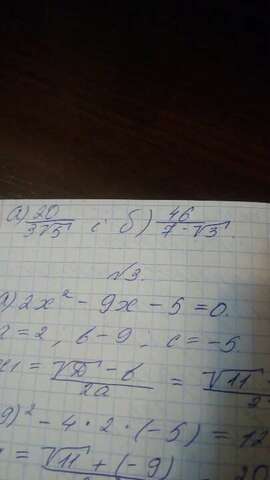 а) 20/3√5 ; б) 46/7-√3.
№3.
а) 2x² - 9x - 5 = 0.
a = 2, b - 9; c = -5.
x₁ = √D - b/2a = √11
9)² - 4 · 2 · (-5) = 12
= √11 + (-9) 20